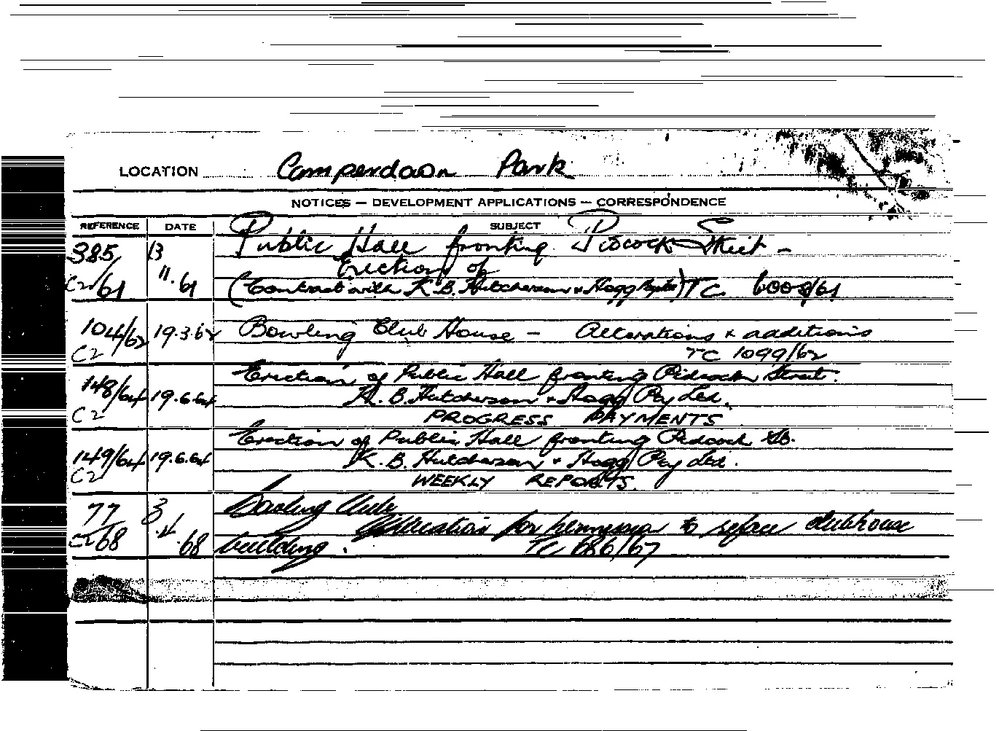 LOCATION Camperdown Park
NOTICES — DEVELOPMENT APPLICATIONS — CORRESPONDENCE
REFERENCE DATE SUBJECT
385 13 Public Hall fronting Pidcock Street —
Erection of
C2/61 11.61 (Contract with K.B. Hutcherson & Hogg Pty Ltd) TC 6008/61
104/62 19.3.62 Bowling Club House — Alterations & additions
C2 TC 1099/62
Erection of Public Hall fronting Pidcock Street.
148/64 19.6.64 K.B. Hutcherson & Hogg Pty Ltd.
C2 PROGRESS PAYMENTS
Erection of Public Hall fronting Pidcock St.
149/64 19.6.64 K.B. Hutcherson & Hogg Pty Ltd.
C2 WEEKLY REPORTS.
77 3 Bowling Club
C2/68 .4 Application for permission to reface clubhouse
68 building. TC 686/67